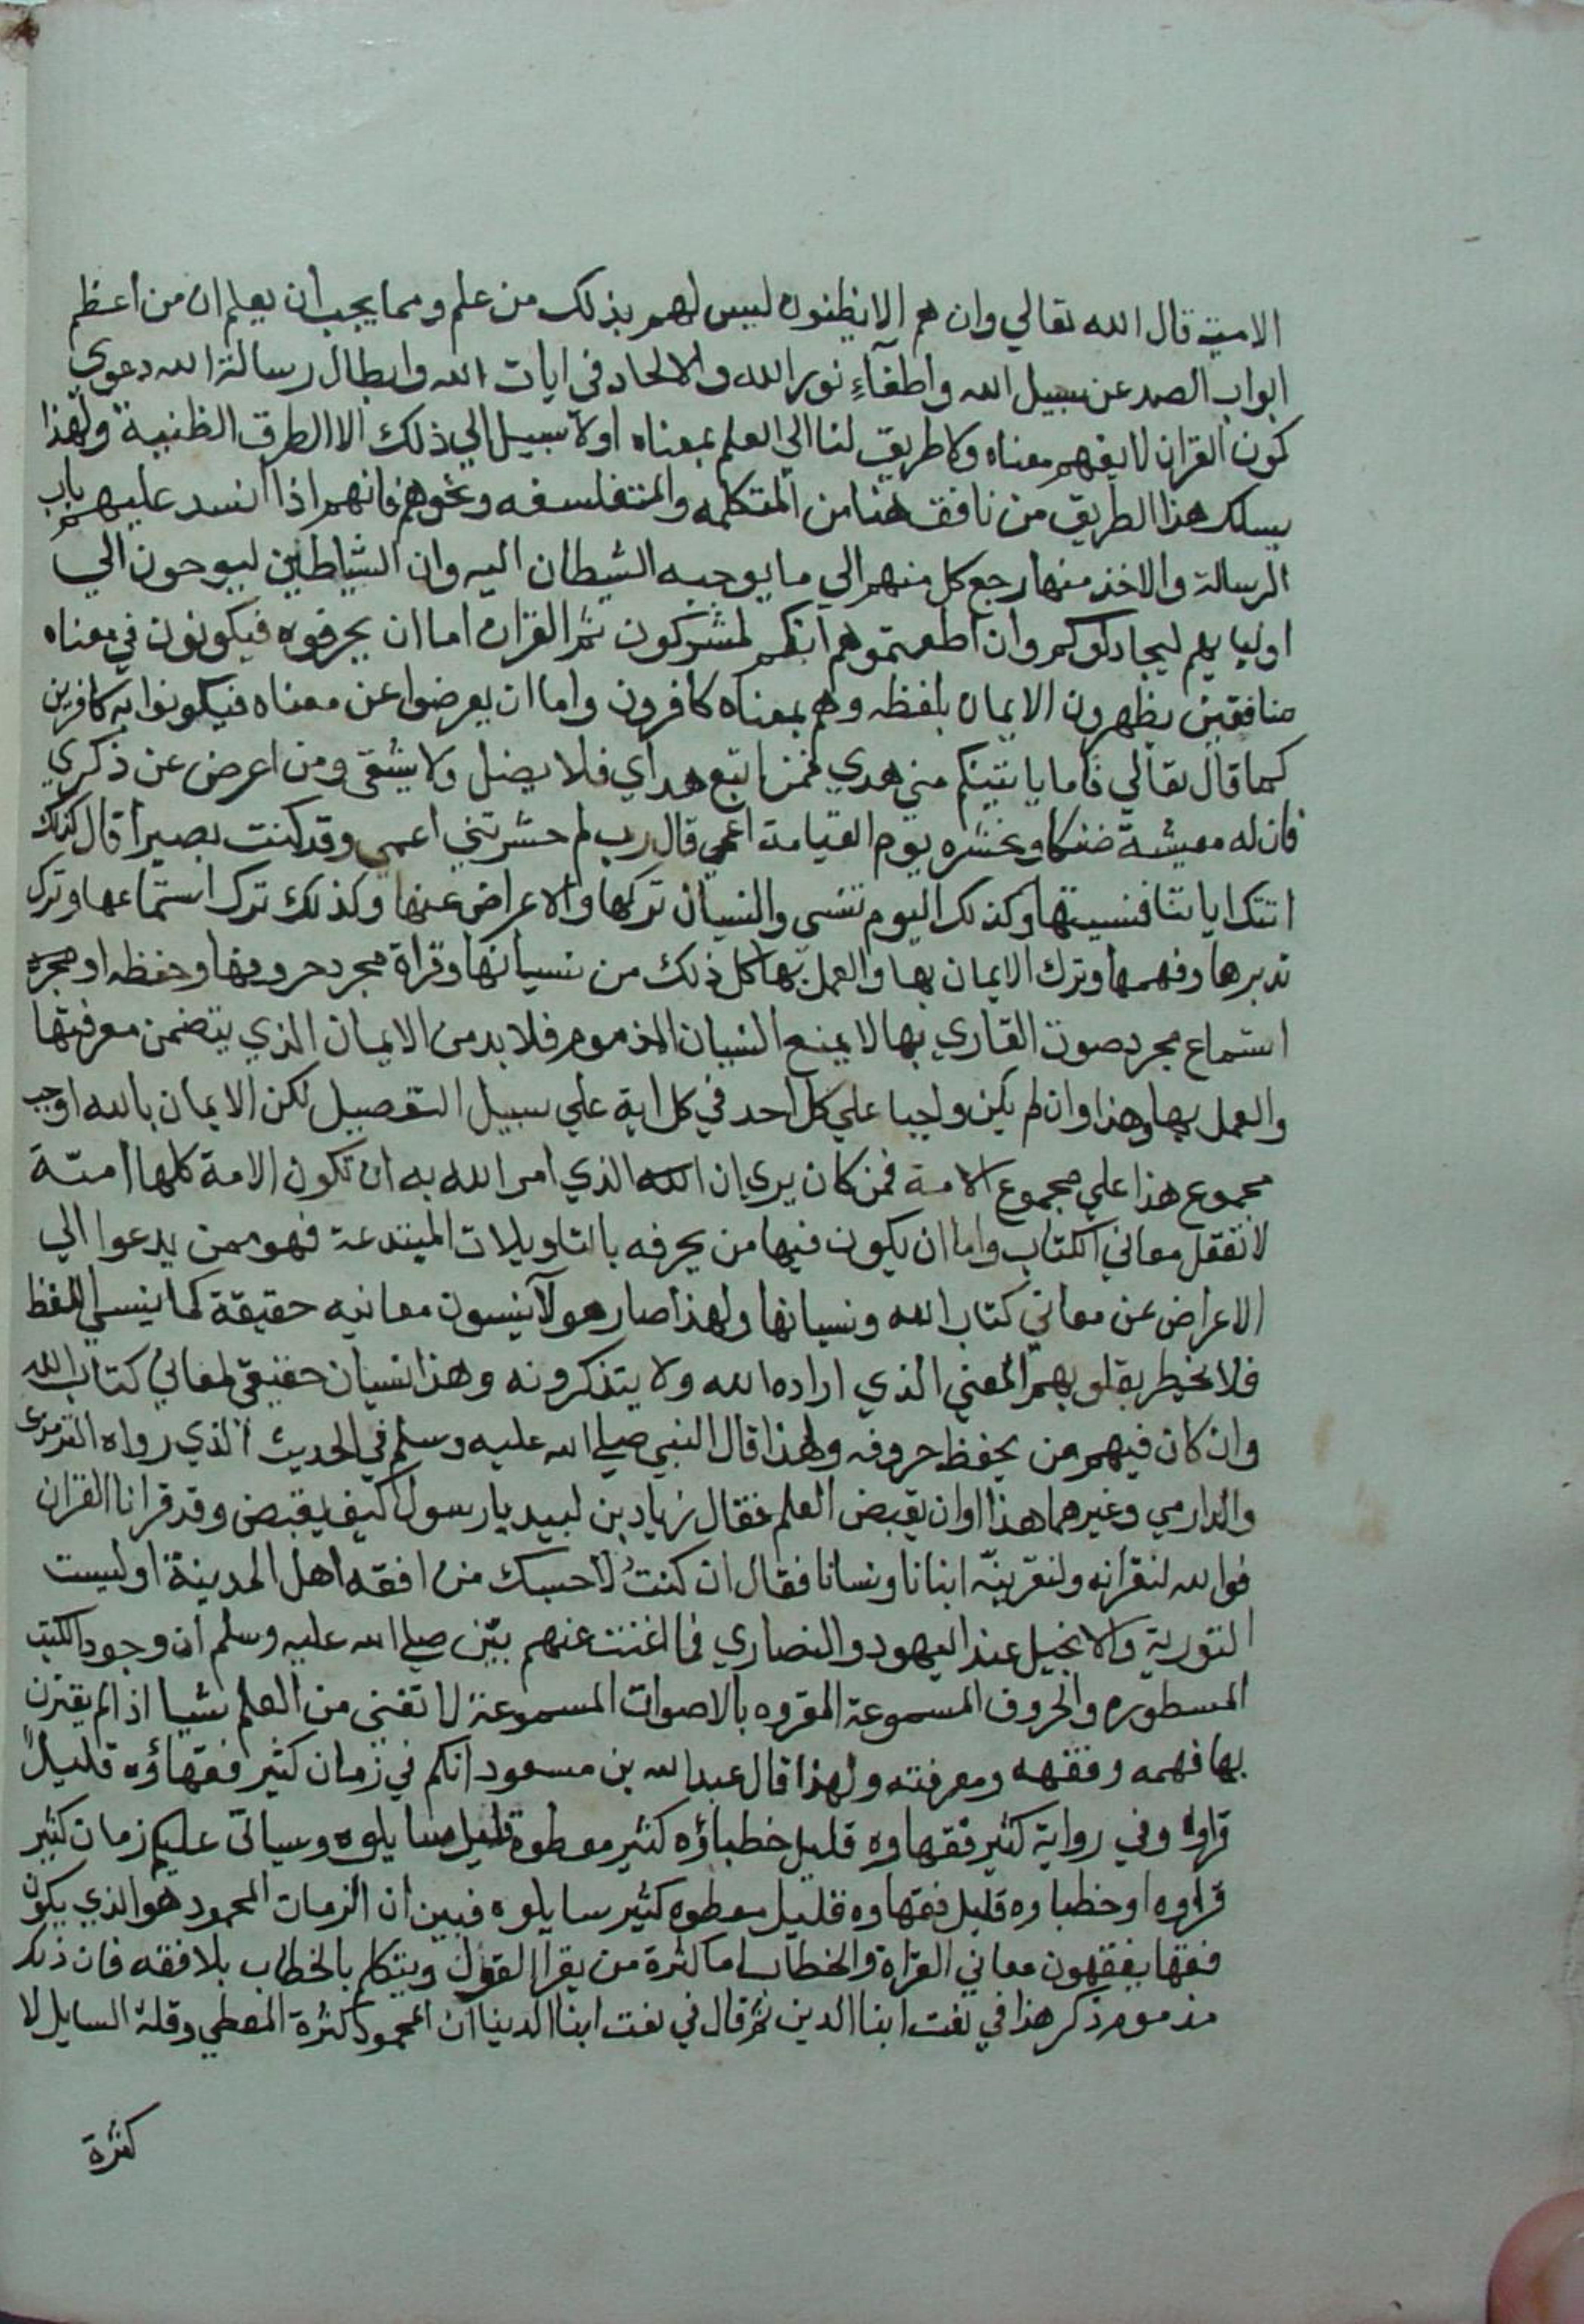 الامية قال الله تعالي وان هم الا يظنون ليس لهم بذلك من علم ومما يجب ان يعلم ان من اعظم
ابواب الصد عن سبيل الله واطفآءِ نور الله والالحاد في ايات الله وابطال رسالة الله دعوي
كون القران لا يفهم معناه ولا طريق لنا الي العلم بمعناه اولا سبيل الي ذلك الا الطرق الظنية ولهذا
يسلك هذا الطريق من نافق هنا من المتكلمه والمتفلسفه ونحوهم فانهم اذا انسد عليهم باب
الرسالة والاخذ منها رجع كل منهم الي ما يوحيه الشيطان اليه وان الشياطين ليوحون الي
اوليايهم ليجادلوكم وان اطعتموهم انكم لمشركون ثم القران اما ان يحرفوه فيكونون في معناه
منافقين يظهرون الايمان بلفظه وهم بمعناه كافرون واما ان يعرضوا عن معناه فيكونوا به كافرين
كما قال تعالي فاما ياتينكم مني هدي فمن اتبع هداي فلا يضل ولا يشقي ومن اعرض عن ذكري
فان له معيشة ضنكا ونحشره يوم القيامة اعمي قال رب لم حشرتني اعمي وقد كنت بصيرا قال كذلك
اتتك اياتنا فنسيتها وكذلك اليوم تنسي والنسيان تركها والاعراض عنها وكذلك ترك استماعها وترك
تدبرها وفهمها وترك الايمان بها والعمل بها كل ذلك من نسيانها وقراة مجرد حروفها وحفظه او مجرد
استماع مجرد صوت القاري بها لا يمنع النسيان المذموم فلا بد من الايمان الذي يتضمن معرفتها
والعمل بها وهذا وان لم يكن واجبا علي كل احد في كل اية علي سبيل التفصيل لكن الايمان بالله اوجب
مجموع هذا علي مجموع الامة فمن كان يري ان الله الذي امر الله به ان تكون الامة كلها امتة
لا تعقل معاني الكتاب واما ان يكون فيها من يحرفه بالتاويلات المبتدعة فهو ممن يدعوا الي
الاعراض عن معاني كتاب الله ونسيانها ولهذا صار هولآ ينسون معانيه حقيقة كما ينسي اللفظ
فلا يخطر بقلوبهم المعني الذي اراده الله ولا يتذكرونه وهذا نسيان حقيقي لمعاني كتاب الله
وان كان فيهم من يحفظ حروفه ولهذا قال النبي صلي الله عليه وسلم في الحديث الذي رواه الترمذي
والدارمي وغيرهما هذا اوان يقبض العلم فقال زياد بن لبيد يا رسول كيف يقبض وقد قرانا القران
فوالله لنقرانه ولنقرينّه ابنانا ونسانا فقال ان كنتُ لاحسبك من افقه اهل المدينة اوليست
التورية والانجيل عند اليهود والنصاري فما اغنت عنهم بيّن صلي الله عليه وسلم ان وجود الكتب
المسطوره والحروف المسموعة المقروه بالاصوات المسموعة لا تغني من العلم شيا اذا لم يقترن
بها فهمه وفقهه ومعرفته ولهذا قال عبد الله بن مسعود انكم في زمان كثير فقهاؤه قليلٌ
قراوه وفي رواية كثير فقهاوه قليل خطباؤه كثير معطوه قليل سايلوه وسياتي عليكم زمان كثير
قراوه او خطباوه قليل فقهاوه قليل معطوه كثير سايلوه فبين ان الزمان المحمود هو الذي يكون
فقها يفقهون معاني القراة والخطاب اما كثرة من يقرا القول ويتكلم بالخطاب بلا فقه فان ذلك
مذموم ذكر هذا في نعت ابنا الدين ثم قال في نعت ابنا الدنيا ان المحمود كثرة المعطي وقلة السايل لا
كثرة